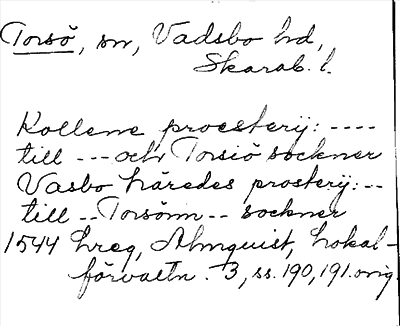 Torsö, sn, Vadsbo hd,
Skarab. l.
Kollene proesterij: ----
till --- och Torsiö sockner
Vasbo häredes prosterij: --
till -- Torsönn -- sockner
1544 hreg, Almquist, Lokal-
förvaltn. 3, ss. 190, 191. orig.